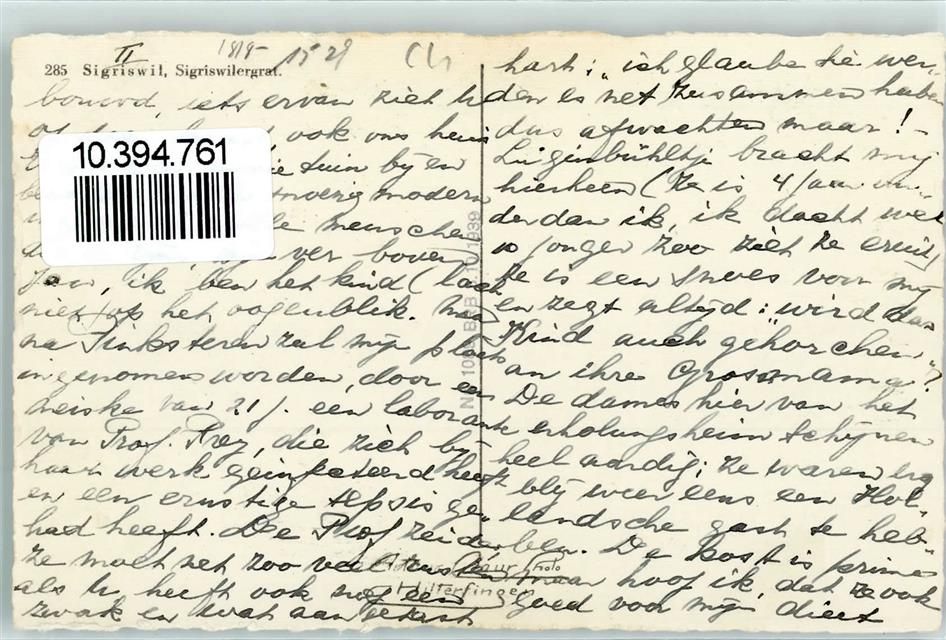 II 1815 15 29
285 Sigriswil, Sigriswilergrat.
10.394.761
bouwd, iets ervan ziet U
ook ons huis
tuin bij en
modern
menschen
ver boven
Jaw, ik ben het kind (lach
niet) op het oogenblik. Maar
na Pinksteren zal mijn plaats
ingenomen worden, door een
meiske van 21 j. een laborante
van Prof. Frey, die zich bij
haar werk geinfecteerd heeft
en een ernstige sepsis ge-
had heeft. De Prof zeide
ze moet net zoo veel rusten
als U, heeft ook nog een
zwak en wat aangetast
hart: „ich glaube Sie wer-
den es net zusammen haben
dus afwachten maar! -
Luginbühltje bracht mij
hierheen (ze is 4 jaar ou-
der dan ik, ik dacht wel
10 jonger zoo ziet ze eruit)
ze is een snoes voor mij
en zegt altijd: „wird das
Kind auch gehorchen"
an ihre Grossmama"?
De dames hier van het
erholungsheim schijnen
heel aardig; ze waren erg
blij weer eens een Hol-
landsche gast te heb-
ben. De kost is prima
maar hoof ik, dat ze ook
goed voor mijn dieet
Photo
Hilterfingen